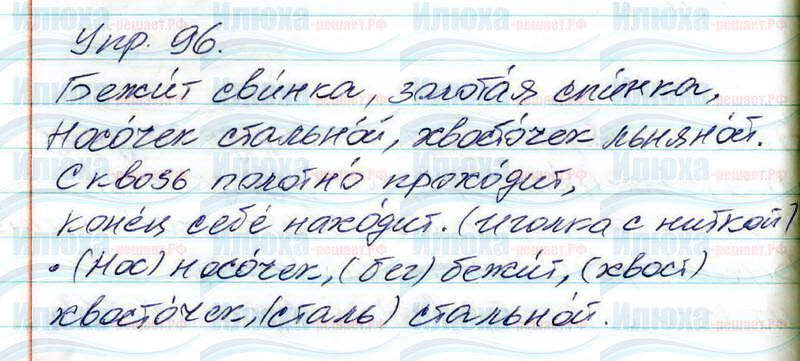 Упр. 96.
Бежи́т сви́нка, золота́я спи́нка,
Носо́чек стально́й, хвосто́чек льняно́й.
Сквозь полотно́ прохо́дит,
коне́ц себе́ нахо́дит. (Иголка с ниткой)
• (Нос) носо́чек, (бег) бежи́т, (хвост)
хвосто́чек, (сталь) стально́й.
Илюха-решает.РФ